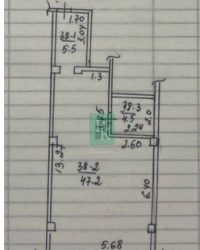 1.70
38-1
5.5
3.04
1.3
38-3
4.5
2.24
2.0
2.60
13.27
38-2
47.2
6.40
5.68